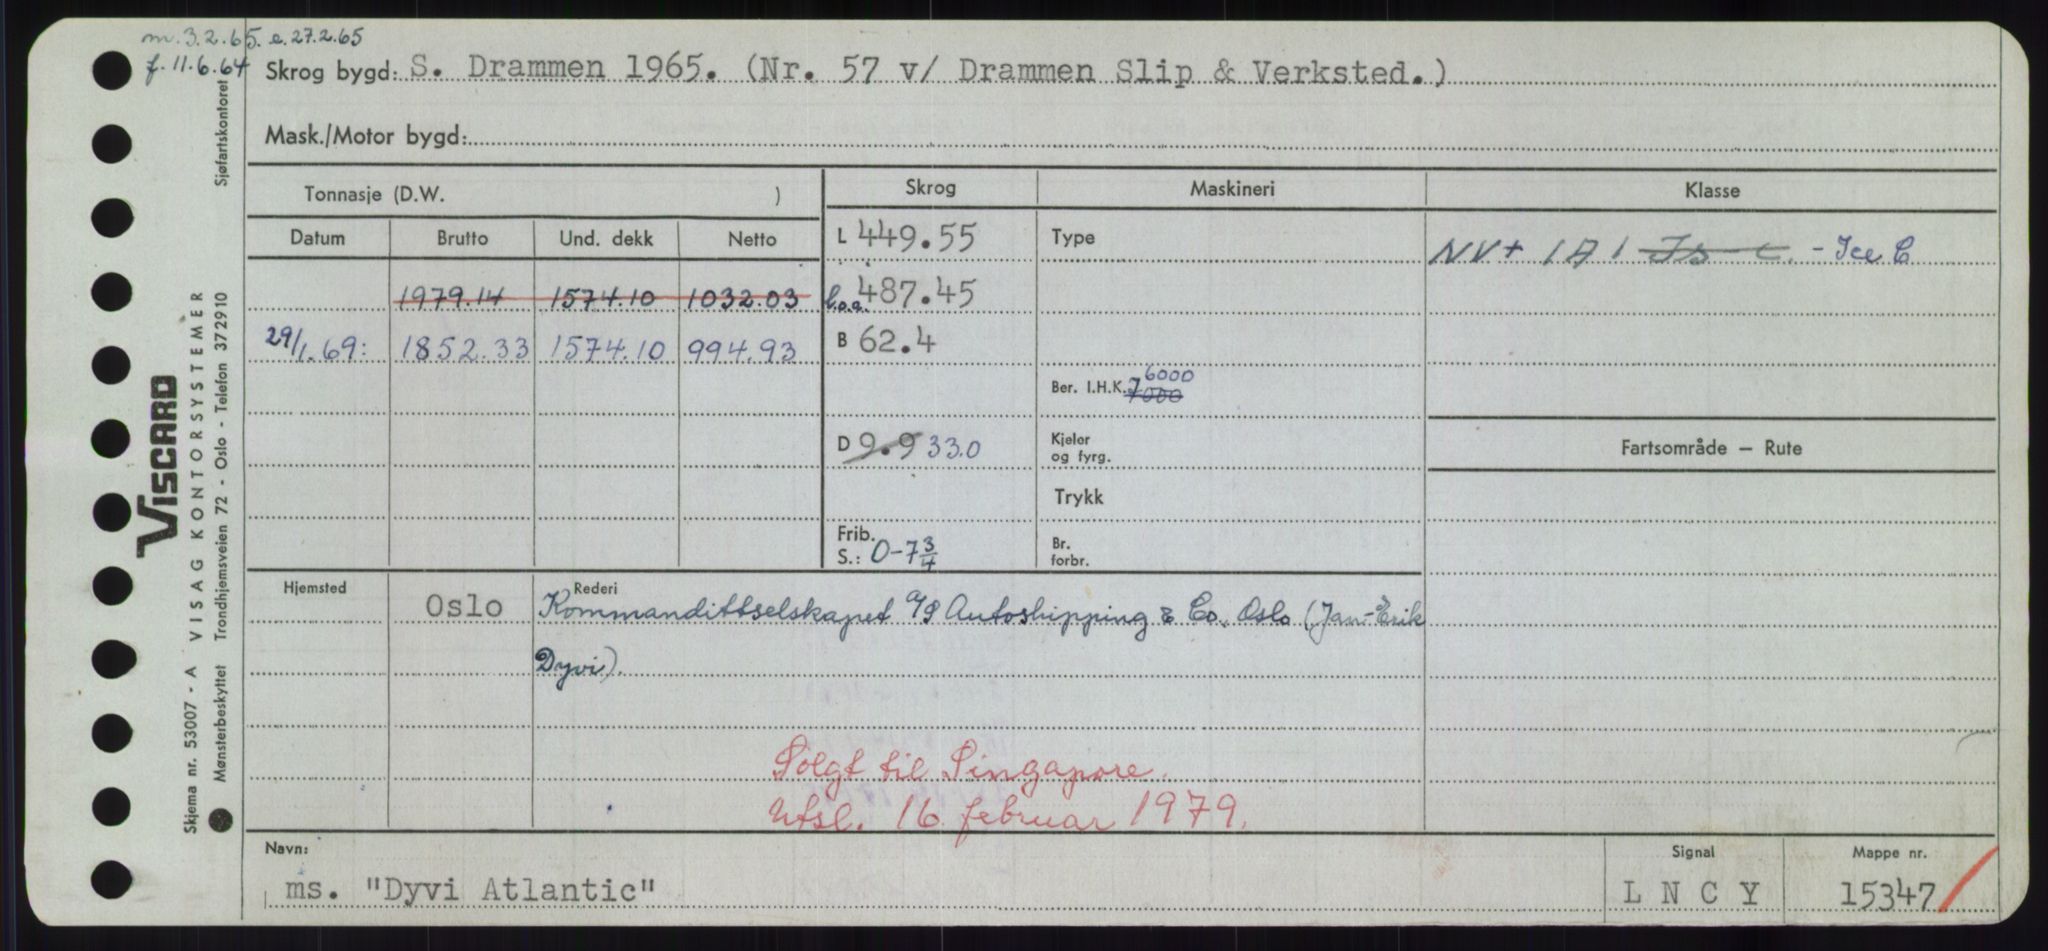 m. 3.2.65. e. 27.2.65
f. 11.6.64
Skrog bygd: S. Drammen 1965. (Nr. 57 v/ Drammen Slip & Verksted.)
Mask./Motor bygd:
Tonnasje (D.W. )
Skrog
Maskineri
Klasse
Datum
Brutto
Und. dekk
Netto
L 449.55
Type
NV+ 1A1 Is C. - Ice C
1979.14 1574.10 1032.03
l.o.a. 487.45
29/1.69: 1852.33 1574.10 994.93
B 62.4
Ber. I.H.K. 7000 6000
D 9.9 33.0
Kjeler
og fyrg.
Fartsområde – Rute
Trykk
Frib.
S.: 0-7 3/4
Br.
forbr.
Hjemsted
Oslo
Rederi
Kommandittselskapet A/S Autoshipping & Co. Oslo (Jan-Erik
Dyvi).
Solgt til Singapore.
Utsl. 16 februar 1979.
Navn:
ms. "Dyvi Atlantic"
Signal
LNCY
Mappe nr.
15347
VISCARD
Skjema nr. 53007 - A VISAG KONTORSYSTEMER
Mønsterbeskyttet Trondhjemsveien 72 - Oslo - Telefon 372910 Sjøfartskontoret